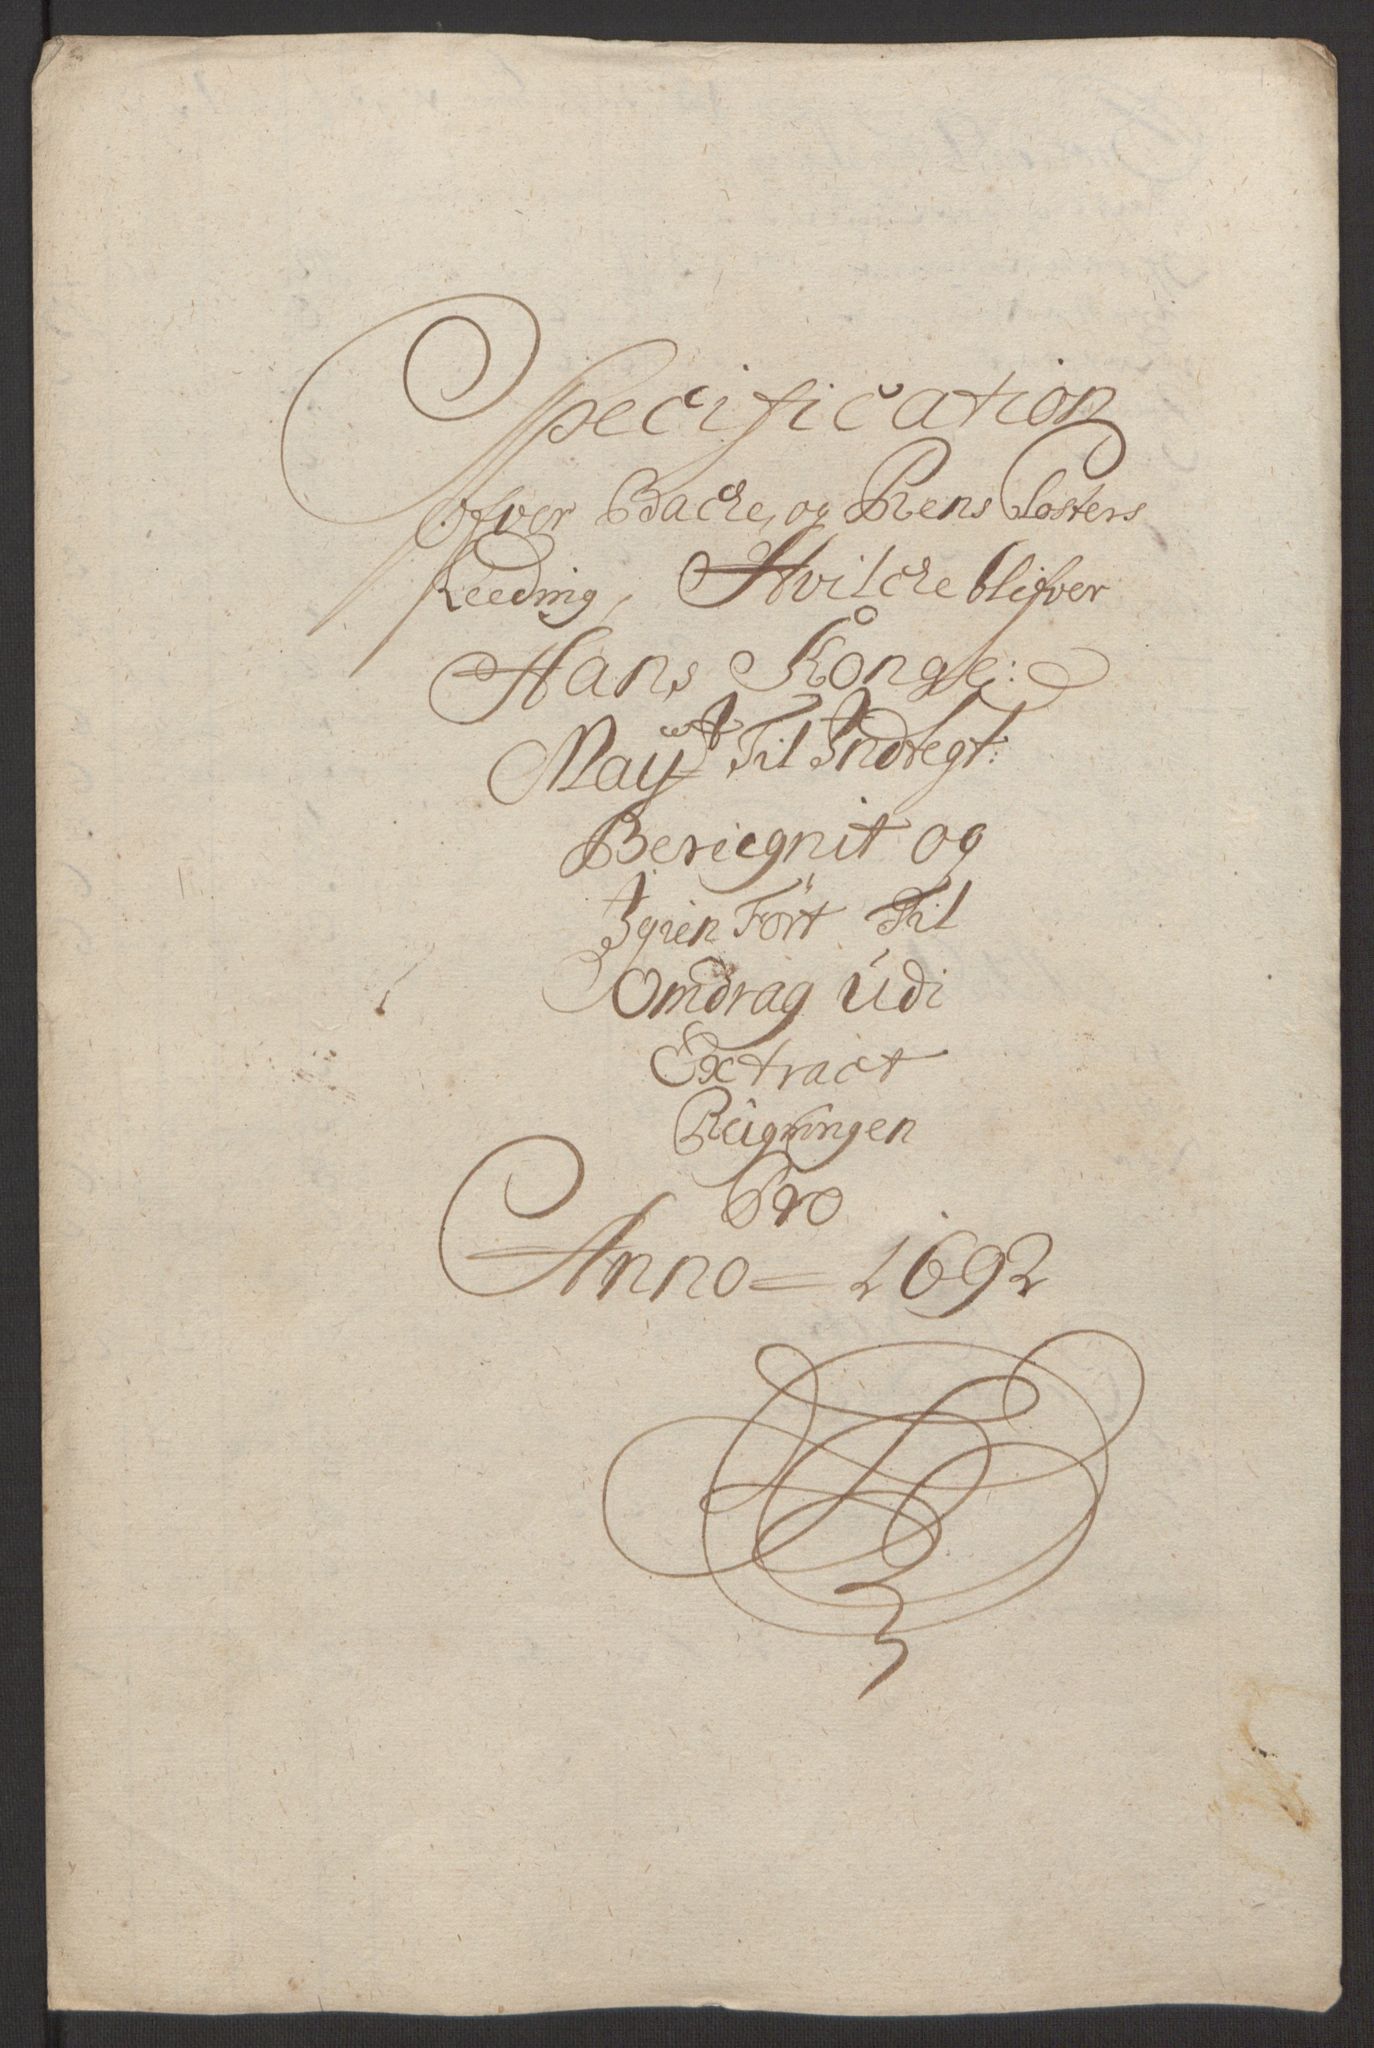 Specification
ofver Backe, og Rens Closters
Leeding, Hvilcke blifver
Hans Konge:
Mayᵗ Til Indtegt:
Beriegnit og
Igien Fört Til
Omdrag Udi
Extract
Reigningen
Pro
Anno = 1692